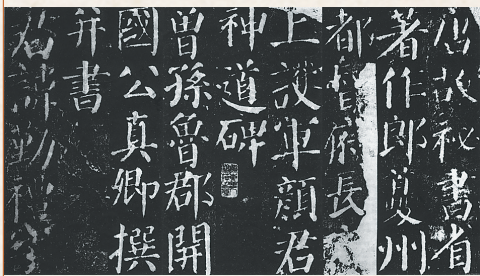 唐故祕書省
著作郎夔州
都督府長史
上護軍顏君
神道碑
曾孫魯郡開
國公真卿撰
并書
君諱勤禮字